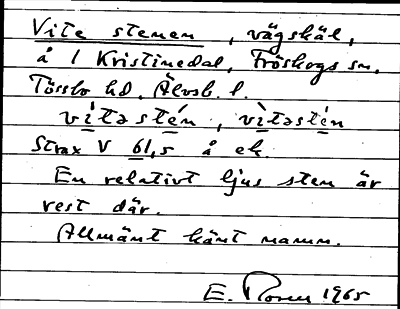 Vite stenen, vägskäl,
å 1 Kristinedal, Fröskogs sn,
Tössbo hd, Älvsb. l.
vi̇̀təstén, vi̇̀təstén
Strax V 61,5 å ek.
En relativt ljus sten är
rest där.
Allmänt känt namn.
E. 1965